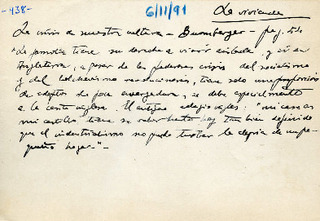 -438-
6/11/91
La vivienda
La crisis de nuestra cultura - Bromberger - pag. 510
"La familia tiene su derecho a vivir aislada y aún en
Inglaterra, a pesar de las pedantes crisis del socialismo
y del bolchevismo revolucionario, tiene solo un
de adeptos de poca envergadura, y se debe especialmente
a la casita inglesa. El antiguo adagio inglés: "mi casa es
mi castillo" tiene su valor hasta hoy tan bien definido
que el industrialismo no pudo turbar la alegría de un pe-
queño hogar." -